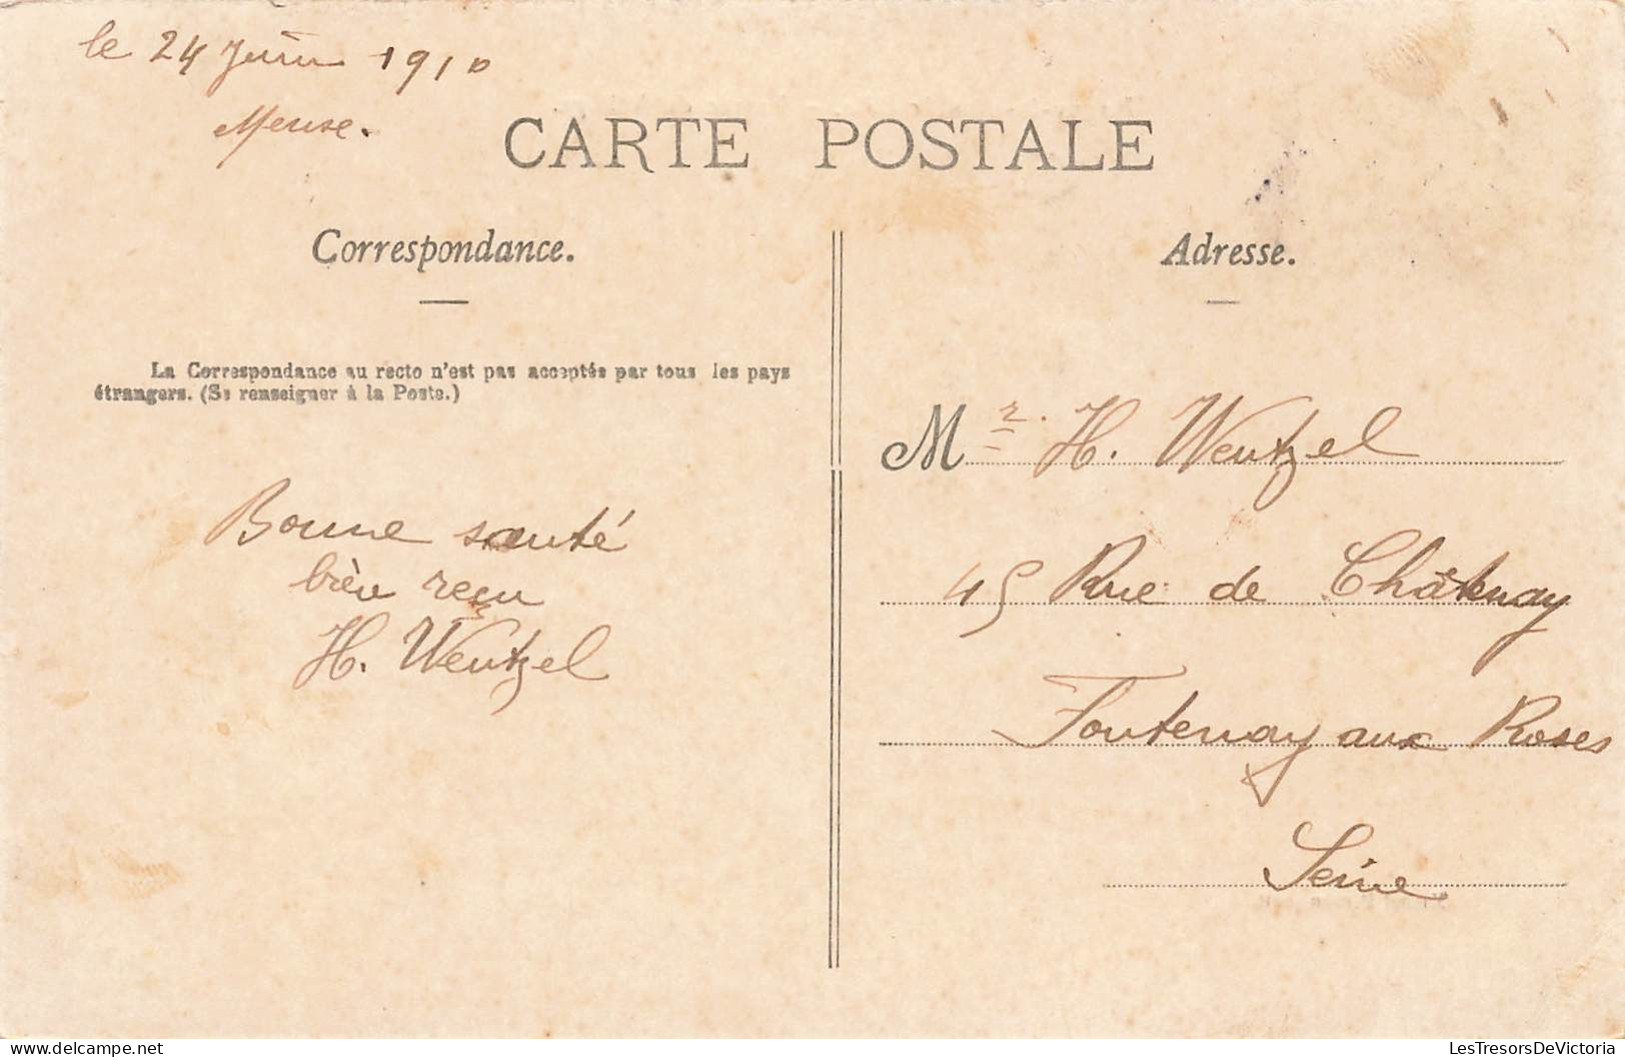 le 24 Juin 1910
Meuse.
CARTE POSTALE
Correspondance.
La Correspondance au recto n'est pas acceptée par tous les pays
étrangers. (Se renseigner à la Poste.)
Bonne santé
bien reçu
H. Wentzel
Adresse.
Mr. H. Wentzel
45 Rue de Châtenay
Fontenay aux Roses
Seine
LesTresorsDeVictoria